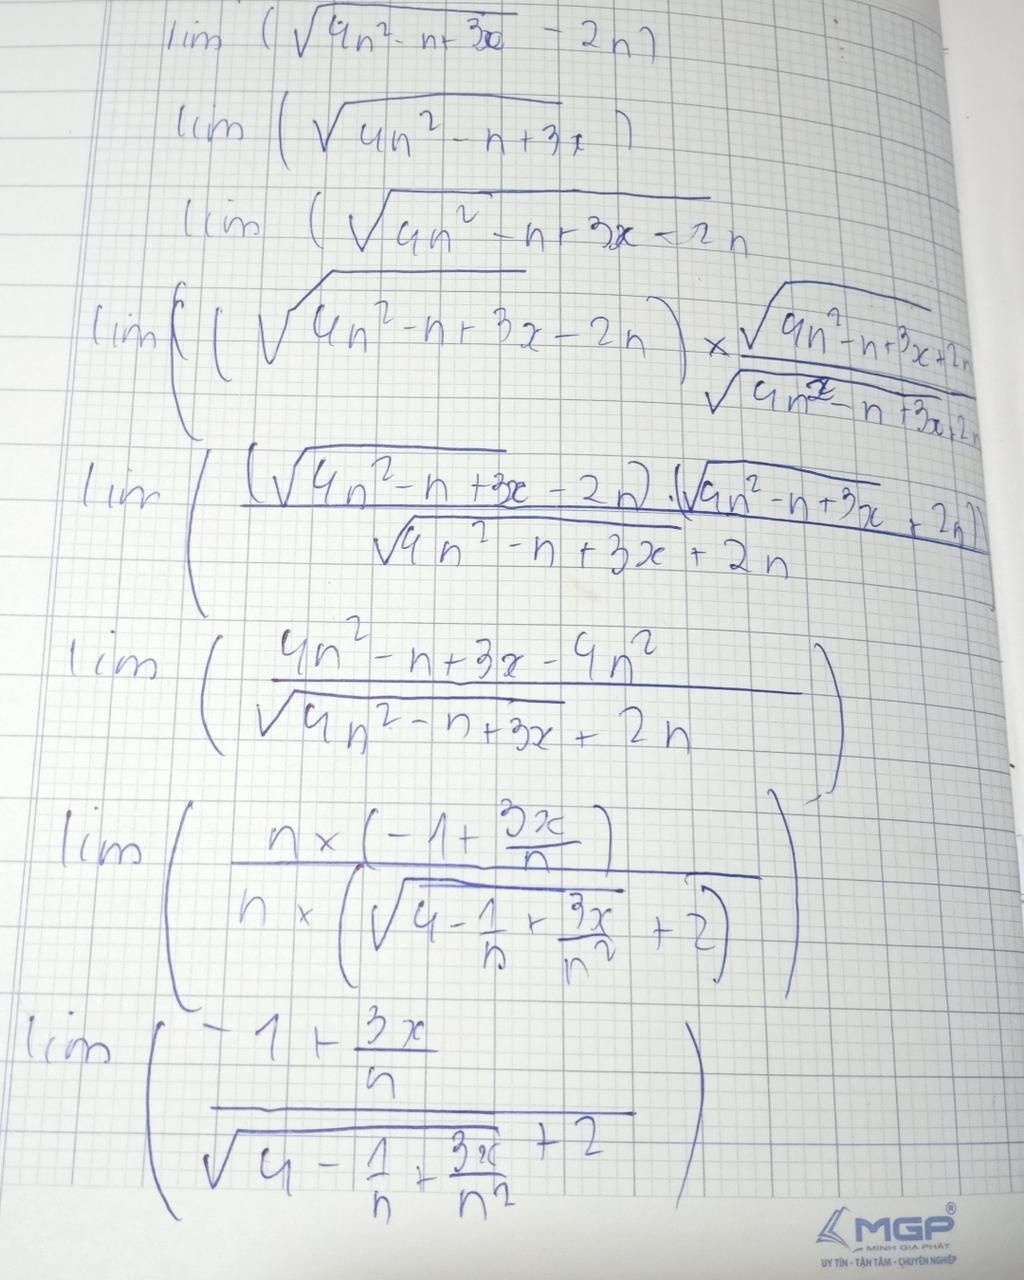 lim (√(4n² - n + 3x) - 2n)
lim (√(4n² - n + 3x))
lim (√(4n² - n + 3x - 2n
lim ((√(4n² - n + 3x) - 2n) × (√(4n² - n + 3x) + 2n)/(√(4n² - n + 3x) + 2n)
lim ((√(4n² - n + 3x) - 2n).(√(4n² - n + 3x) + 2n)/(√(4n² - n + 3x) + 2n)
lim ((4n² - n + 3x - 4n²)/(√(4n² - n + 3x) + 2n))
lim ((n × (-1 + 3x/n))/(n × (√(4 - 1/n + 3x/n²) + 2)))
lim ((-1 + 3x/n)/(√(4 - 1/n + 3x/n²) + 2))
MGP®
MINH GIA PHÁT
UY TÍN - TẬN TÂM - CHUYÊN NGHIỆP